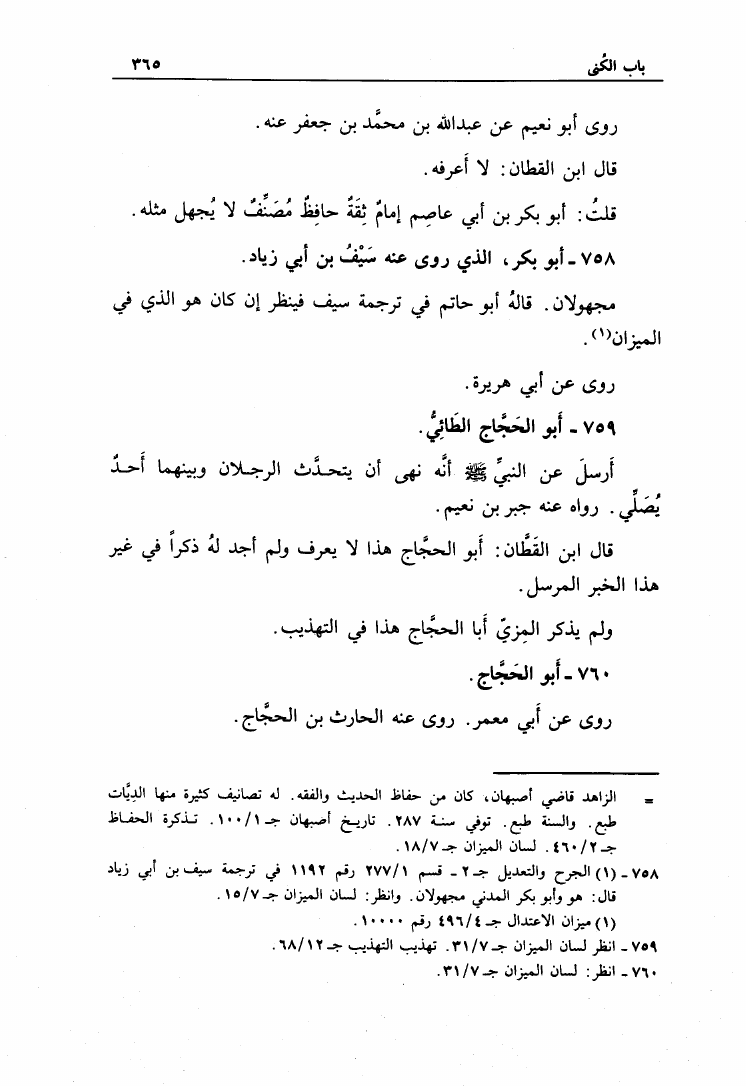 باب الكُنى ٣٦٥
روى أبو نعيم عن عبدالله بن محمَّد بن جعفر عنه.
قال ابن القطان: لا أَعرفه.
قلتُ: أبو بكر بن أبي عاصِم إمامٌ ثِقَةٌ حافِظٌ مُصَنِّفٌ لا يُجهل مثله.
٧٥٨ - أبو بكر، الذي روى عنه سَيْفُ بن أبي زياد.
مجهولان. قالهُ أبو حاتم في ترجمة سيف فينظر إن كان هو الذي في
الميزان(١).
روى عن أبي هريرة.
٧٥٩ - أَبو الحَجَّاج الطَائِيُّ.
أَرسلَ عن النبيِّ ﷺ أنَّه نهى أن يتحدَّث الرجلان وبينهما أَحدٌ
يُصَلِّي. رواه عنه جبر بن نعيم.
قال ابن القَطَّان: أَبو الحجَّاج هذا لا يعرف ولم أجد لهُ ذكراً في غير
هذا الخبر المرسل.
ولم يذكر المِزيّ أَبا الحجَّاج هذا في التهذيب.
٧٦٠ - أَبو الحَجَّاج.
روى عن أَبي معمر. روى عنه الحارث بن الحجَّاج.
= الزاهد قاضي أصبهان، كان من حفاظ الحديث والفقه. له تصانيف كثيرة منها الدِيَّات
طبع. والسنة طبع. توفي سنة ٢٨٧. تاريخ أصبهان جـ ١٠٠/١. تذكرة الحفاظ
جـ ٤٦٠/٢. لسان الميزان جـ ١٨/٧.
٧٥٨ - (١) الجرح والتعديل جـ ٢ - قسم ٢٧٧/١ رقم ١١٩٢ في ترجمة سيف بن أبي زياد
قال: هو وأبو بكر المدني مجهولان. وانظر: لسان الميزان جـ ١٥/٧.
(١) ميزان الاعتدال جـ ٤٩٦/٤ رقم ١٠٠٠٠.
٧٥٩ - انظر لسان الميزان جـ ٣١/٧. تهذيب التهذيب جـ ٦٨/١٢.
٧٦٠ - انظر: لسان الميزان جـ ٣١/٧.